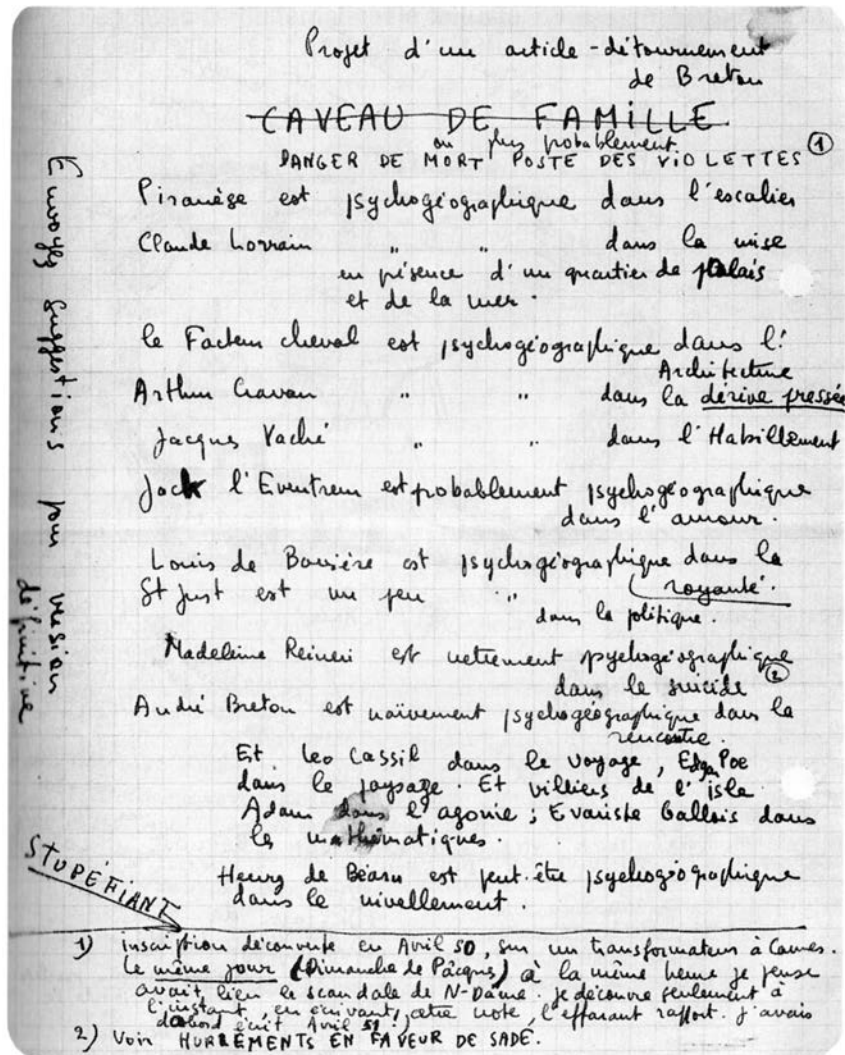 Projet d'un article-détournement
de Breton
CAVEAU DE FAMILLE
ou plus probablement
DANGER DE MORT POSTE DES ViOLETTES ①
Piranèse est psychogéographique dans l'escalier
Claude Lorrain " " dans la mise
en présence d'un quartier de palais
et de la mer.
le Facteur cheval est psychogéographique dans l'
Architecture
Arthur Cravan " " dans la dérive pressée
Jacques Vaché " " dans l'Habillement
Jack l'Eventreur est probablement psychogéographique
dans l'amour.
Louis de Bavière est psychogéographique dans la
royauté.
St Just est un peu "
dans la politique.
Madeleine Reineri est nettement psychogéographique
dans le suicide ②
André Breton est naïvement psychogéographique dans la
rencontre.
Et Leo Cassil dans le voyage, Edgar Poe
dans le paysage. Et villiers de l'isle
Adam dans l'agonie ; Evariste Gallois dans
les mathématiques.
Henry de Béarn est peut-être psychogéographique
dans le nivellement.
Envoyez suggestions pour version
définitive
STUPÉFIANT
1) inscription découverte en Avril 50, sur un transformateur à Cannes.
Le même jour (Dimanche de Pâcques) à la même heure je pense
avait lieu le scandale de N-Dame. je découvre seulement à
l'instant, en écrivant cette note, l'effarant rapport. j'avais
d'abord écrit Avril 51 !)
2) Voir HURLEMENTS EN FAVEUR DE SADE.